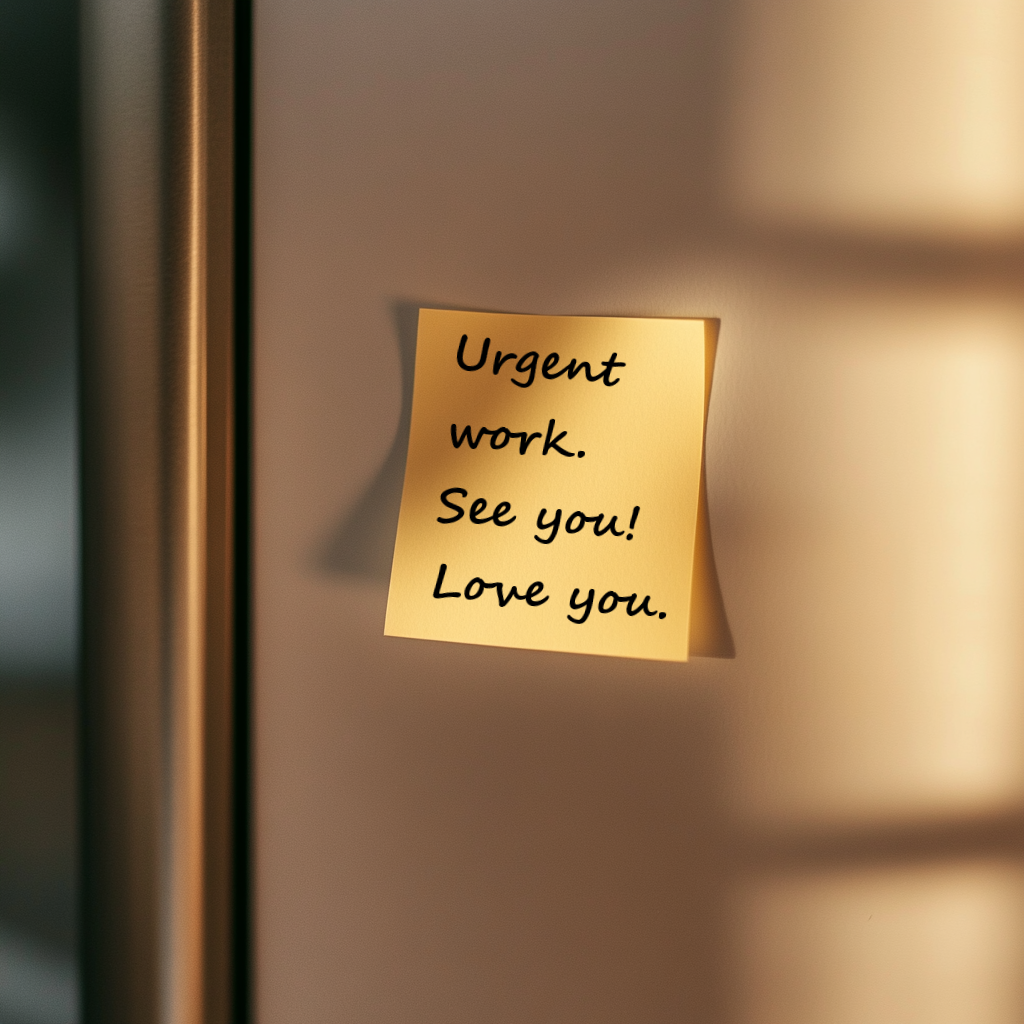 Urgent
work.
See you!
Love you.